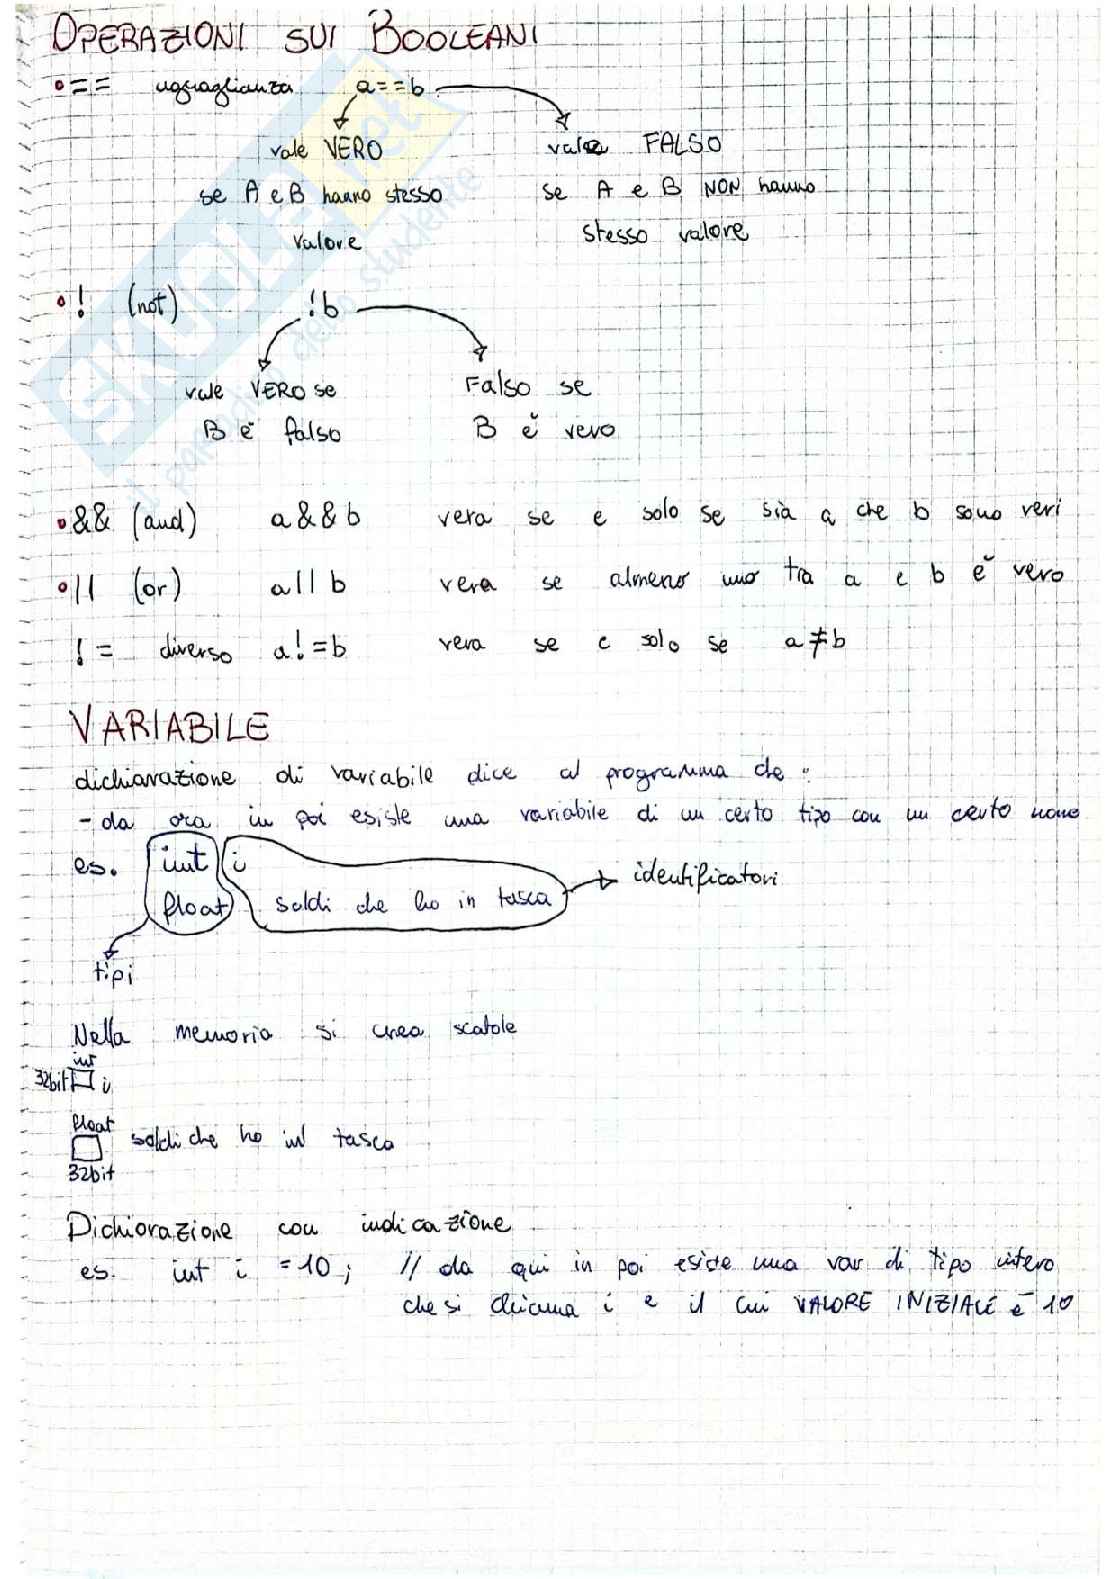 OPERAZIONI SUI BOOLEANI
== uguaglianza a==b
vale VERO vale FALSO
se A e B hanno stesso se A e B NON hanno
valore stesso valore
! (not) !b
vale VERO se Falso se
B è falso B è vero
&& (and) a && b vera se e solo se sia a che b sono veri
|| (or) a || b vera se almeno uno tra a e b è vero
!= diverso a != b vera se e solo se a ≠ b
VARIABILE
dichiarazione di variabile dice al programma che :
- da ora in poi esiste una variabile di un certo tipo con un certo nome
es. int i
float soldi che ho in tasca → identificatori
tipi
Nella memoria si crea scatole
int
32bit i
float
soldi che ho in tasca
32bit
Dichiarazione con indicazione
es. int i = 10 ; // da qui in poi esiste una var di tipo intero
che si chiama i e il cui VALORE INIZIALE è 10
SKUOLA.net
il paradiso dello studente